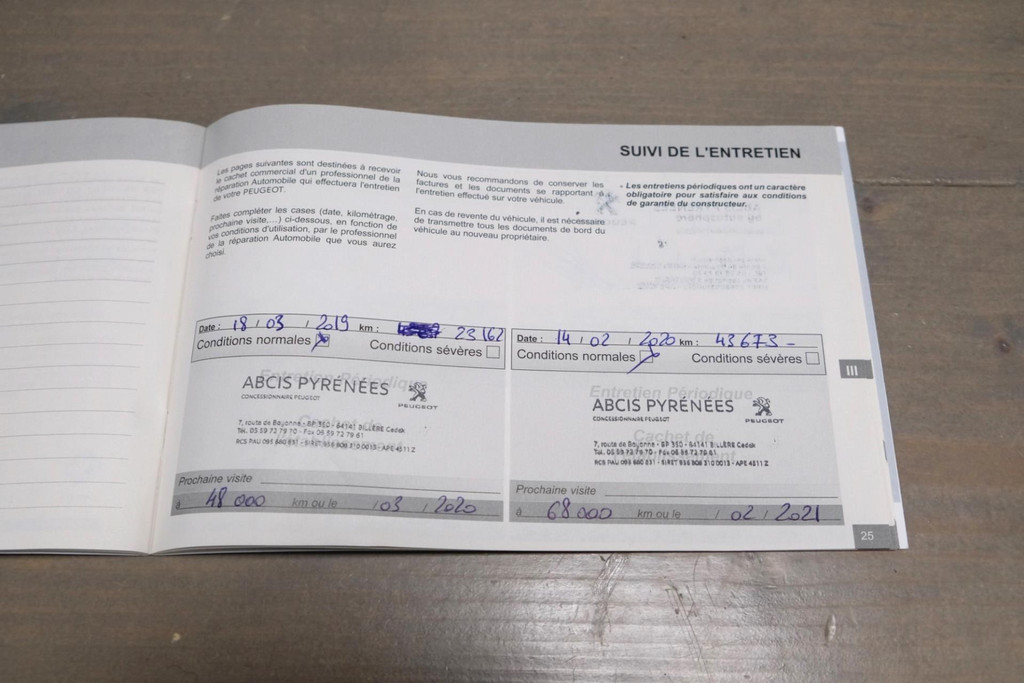 SUIVI DE L'ENTRETIEN
Les pages suivantes sont destinées à recevoir
le cachet commercial d'un professionnel de la
réparation Automobile qui effectuera l'entretien
de votre PEUGEOT.
Faites compléter les cases (date, kilométrage,
prochaine visite,...) ci-dessous, en fonction de
vos conditions d'utilisation, par le professionnel
de la réparation Automobile que vous aurez
choisi.
Nous vous recommandons de conserver les
factures et les documents se rapportant à
l'entretien effectué sur votre véhicule.
En cas de revente du véhicule, il est nécessaire
de transmettre tous les documents de bord du
véhicule au nouveau propriétaire.
- Les entretiens périodiques ont un caractère
obligatoire pour satisfaire aux conditions
de garantie du constructeur.
Date : 18 / 03 / 2019 km : 23162
Conditions normales Conditions sévères
Entretien Périodique
ABCIS PYRÉNÉES
CONCESSIONNAIRE PEUGEOT
PEUGEOT
Cachet de
7, route de Bayonne - BP 350 - 64141 BILLÈRE Cedex
Tél. 05 59 72 79 70 - Fax 05 59 72 79 61
RCS PAU 095 660 831 - SIRET 956 808 310 0013 - APE 4511 Z
Prochaine visite
à 48 000 km ou le / 03 / 2020
Date : 14 / 02 / 2020 km : 43673 -
Conditions normales Conditions sévères
Entretien Périodique
ABCIS PYRÉNÉES
CONCESSIONNAIRE PEUGEOT
PEUGEOT
Cachet de
7, route de Bayonne - BP 350 - 64141 BILLÈRE Cedex
Tél. 05 59 72 79 70 - Fax 05 59 72 79 61
RCS PAU 095 660 831 - SIRET 956 808 310 0013 - APE 4511 Z
Prochaine visite
à 68 000 km ou le / 02 / 2021
III
25